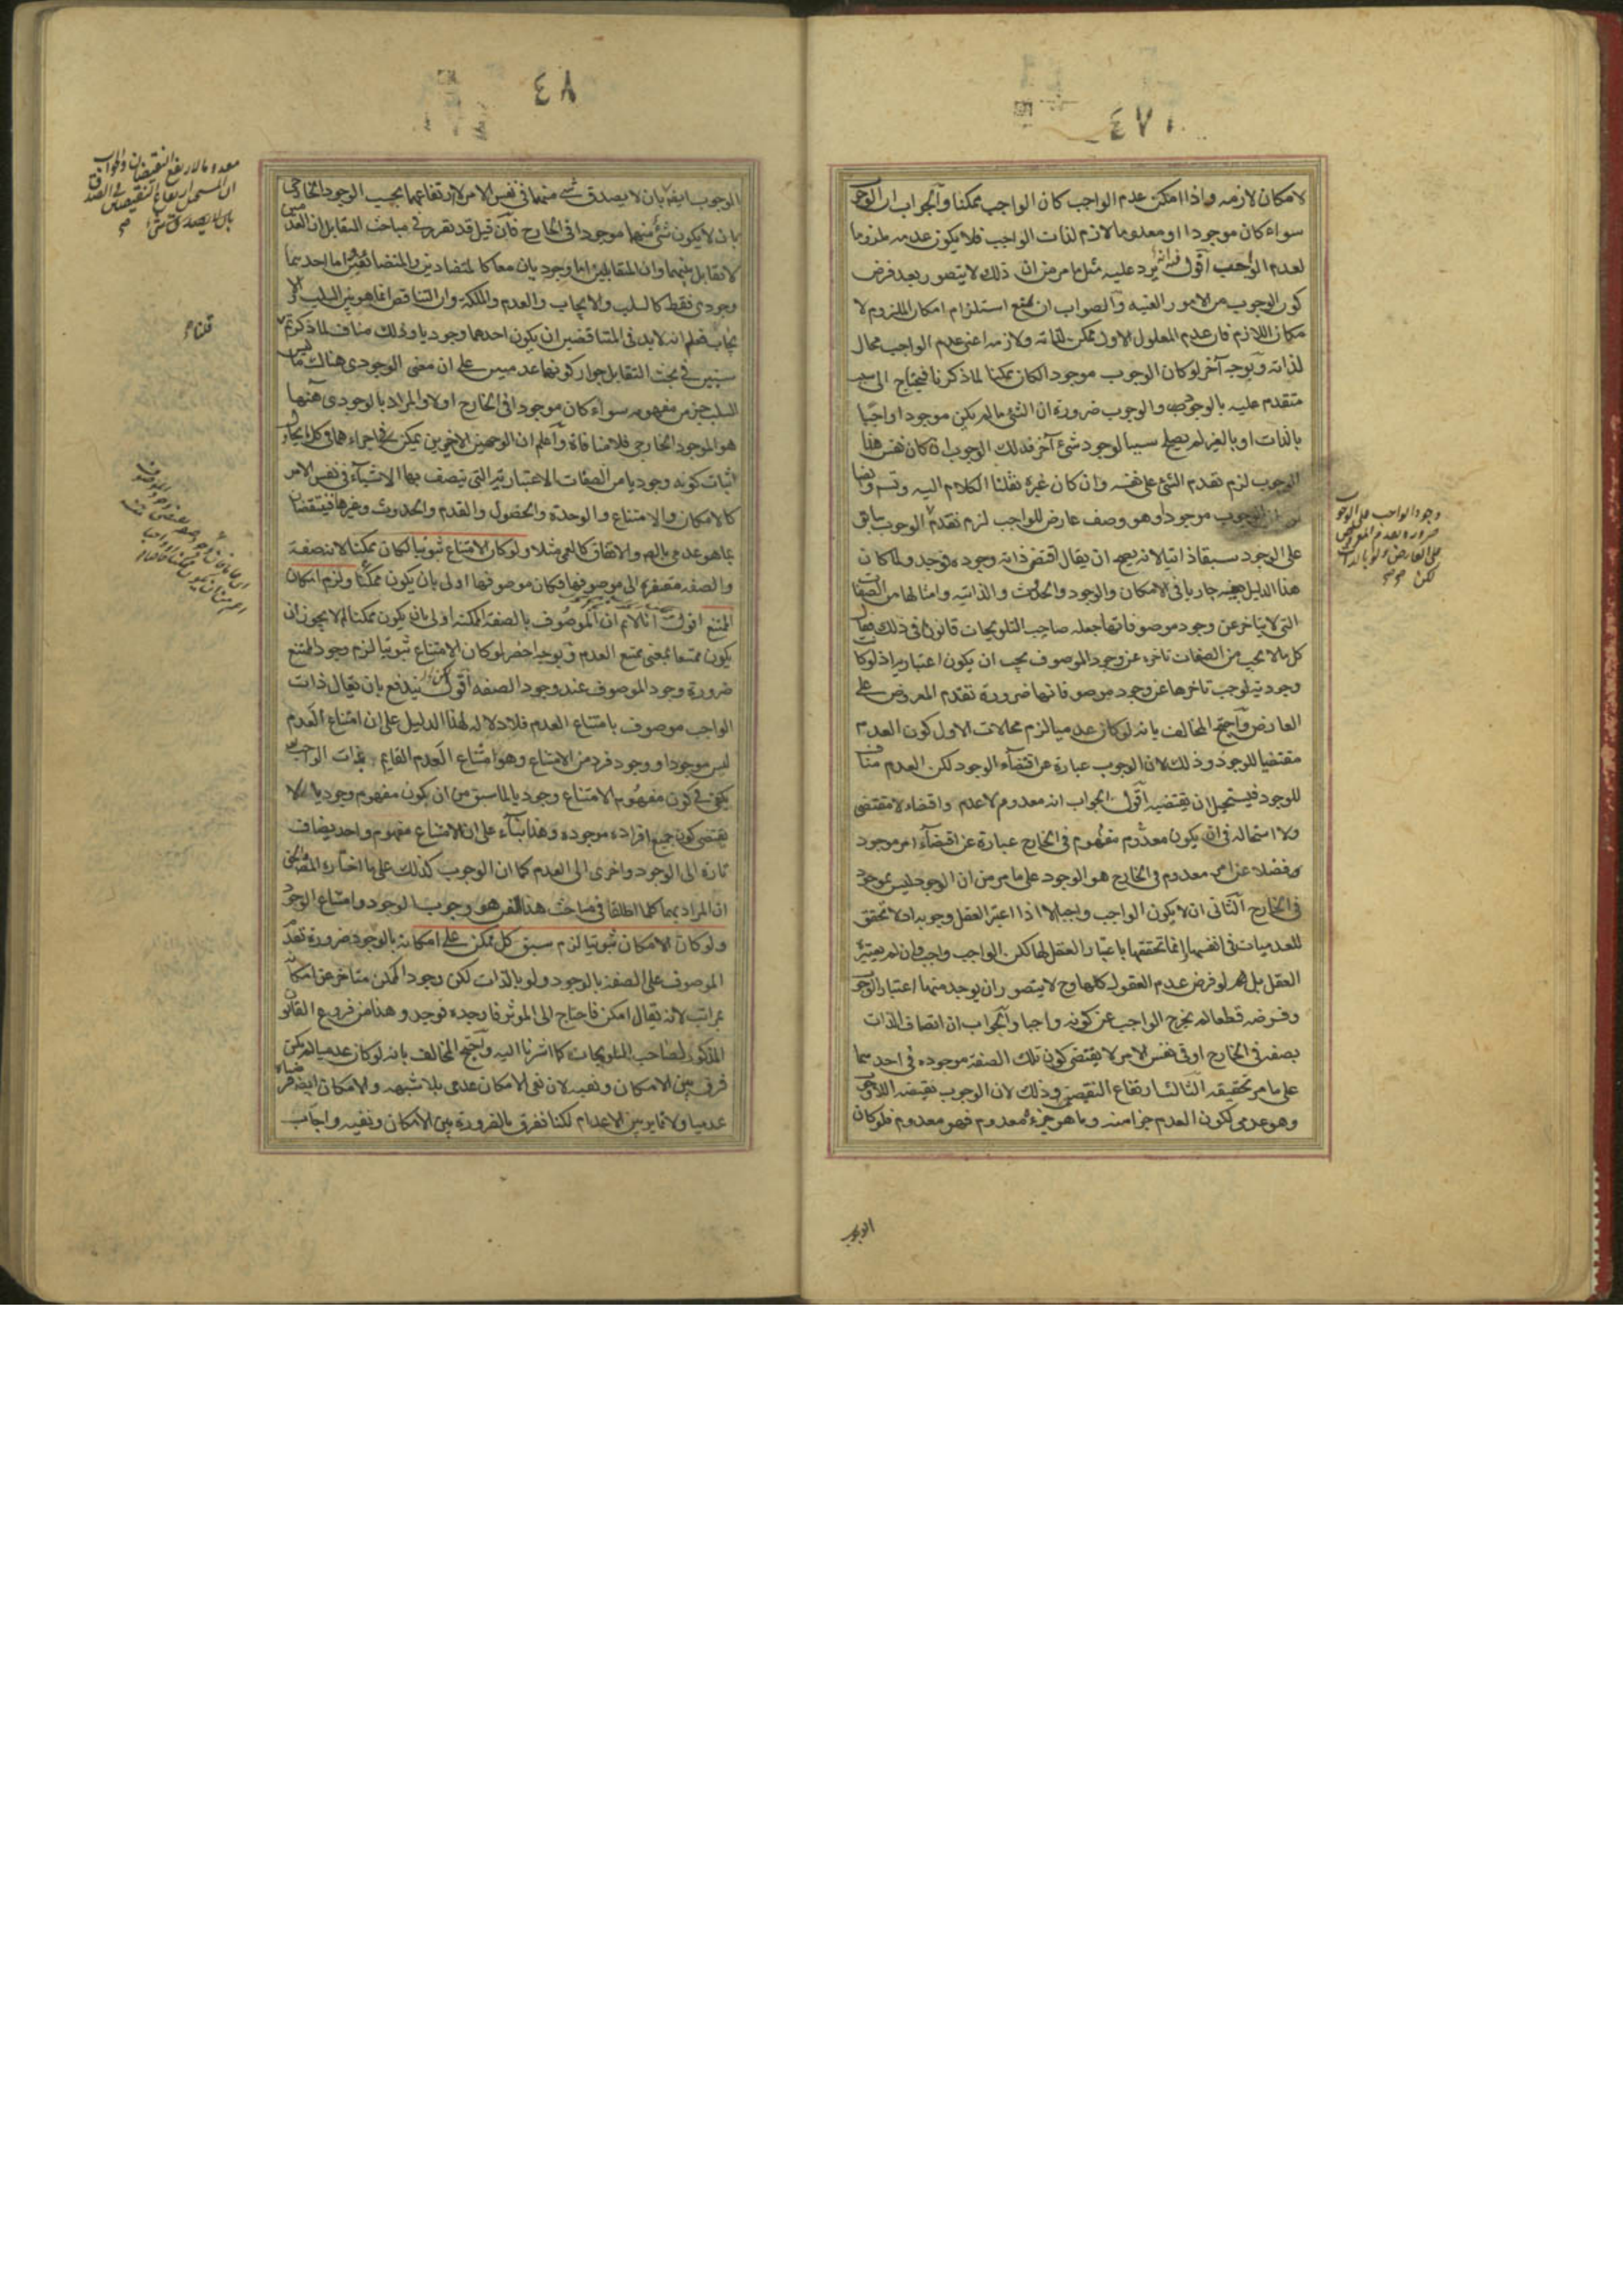 ٤٧
لامكان لازمه واذا امكن عدم الواجب كان الواجب ممكنا والجواب ان الوجو
سواء كان موجودا او معدوما لازم لذات الواجب فلا يكون عدمه ملزوما
لعدم الواجب اقول يرد عليه مثل ما مر من ان ذلك لا يتصور بعد فرض
كون الوجوب من الامور العينيه والصواب ان يمنع استلزام امكان الملزوم لا
مكان اللازم فان عدم المعلول الاول ممكن لذاته ولازمه اعنى عدم الواجب محال
لذاته وبوجه آخر لو كان الوجوب موجودا لكان ممكنا لما ذكرنا فيحتاج الى سبب
متقدم عليه بالوجود والوجوب ضرورة ان الشئ ما لم يكن موجودا واجبا
بالذات او بالغير لم يصلح سببا لوجود شئ آخر فذلك الوجوب ان كان نفس هذا
الوجوب لزم تقدم الشئ على نفسه وان كان غيره نقلنا الكلام اليه وتسلسل وايضا
لو كان الوجوب موجودا وهو وصف عارض للواجب لزم تقدم الوجوب سابق
على الوجود سبقا ذاتيا لانه يصح ان يقال اقتضى ذاته وجوده فوجد ولما كان
هذا الدليل بعينه جاريا فى الامكان والوجود والحدوث والذاتيه وامثالها من الصفات
التى لا يتاخر عن وجود موصوفاتها جعله صاحب التلويحات قانونا فى ذلك فقال
كل ما لا يجب من الصفات تاخره عن وجود الموصوف يجب ان يكون اعتباريا اذ لو كا
وجوديه لوجب تاخرها عن وجود موصوفاتها ضرورة تقدم المعروض على
العارض واحتج المخالف بانه لو كان عدميا لزم محالات الاول كون العدم
مقتضيا للوجود وذلك لان الوجوب عبارة عن اقتضاء الوجود لكن العدم مناف
للوجود فيستحيل ان يقتضيه اقول الجواب انه معدوم لا عدم واقتضاء لا مقتضى
ولا استحاله فى ان يكون معدوم مفهوم فى الخارج عبارة عن اقتضاء امر موجود
فضلا عن امر معدوم فى الخارج هو الوجود على ما مر من ان الوجود ليس بموجود
فى الخارج الثانى ان لا يكون الواجب واجبا الا اذا اعتبر العقل وجوبه اذ لا تحقق
للعدميات فى انفسها انما تحققها باعتبار العقل لها لكن الواجب واجب وان لم يعتبره
العقل بل لو فرض عدم العقول كلها وح لا يتصور ان يوجد منها اعتبار الوجو
وفرضه قطعا لم يخرج الواجب عن كونه واجبا والجواب ان اتصاف الذات
بصفه فى الخارج او فى نفس الامر لا يقتضى كون تلك الصفه موجوده فى احدهما
على ما مر تحقيقه الثالث ارتفاع النقيضين وذلك لان الوجوب نقيضه اللاوجوب
وهو عدمى لكون العدم جزا منه وما هو جزءه معدوم فهو معدوم فلو كان
وجود الواجب على الوجو
ضرورة تقدم المعروض
على العارض ولو بالذات
لكن
الوجوب
٤٨
الوجوب ايضا بان لا يصدق شئ منهما فى نفس الامر لا ارتفاعهما بحسب الوجود الخارجى
بان لا يكون شئ منهما موجودا فى الخارج فان قيل قد تقرر فى مباحث التقابل ان العدمى
لا تقابل بينهما وان المتقابلين اما وجوديان معا كالمتضادين والمتضائفين واما احدهما
وجودى فقط كالسلب والايجاب والعدم والملكة وان التناقض انما هو بين السلب والا
يجاب فعلم انه لا بد فى المتناقضين ان يكون احدهما وجوديا وذلك مناف لما ذكرتم
سنبين فى بحث التقابل جواز كونهما عدميين على ان معنى الوجودى هناك ما ليس
السلب جزء من مفهومه سواء كان موجودا فى الخارج او لا والمراد بالوجودى ههنا
هو الموجود الخارجى فلا منافاة واعلم ان الوجهين الاخيرين يمكن اجراءهما فى كل ايجاب
اثبات كونه وجوديا من الصفات الاعتبارية التى تتصف بها الاشياء فى نفس الامر
كالامكان والامتناع والوحدة والحصول والقدم والحدوث وغيرها فينتقضان
بما هو عدمى بالفعل والاتفاق كالعمى مثلا ولو كان الامتناع ثبوتيا لكان ممكنا لانه صفة
والصفه مفتقره الى موصوفها فكان موصوفها اولى بان يكون ممكنا ولزم امكان
الممتنع اقول انا لا نم ان الموصوف بالصفه الممكنه اولى ان يكون ممكنا لم لا يجوز ان
يكون ممتنعا بمعنى ممتنع العدم وبوجه اخصر لو كان الامتناع ثبوتيا لزم وجود الممتنع
ضرورة وجود الموصوف عند وجود الصفه اقول يندفع بان يقال ذات
الواجب موصوف بامتناع العدم فلا دلاله لهذا الدليل على ان امتناع العدم
ليس موجودا ووجود فرد من الامتناع وهو امتناع العدم القايم بذات الواجب
يكفى فى كون مفهوم الامتناع وجوديا لما سبق من ان كون مفهوم وجوديا لا
يقتضى كون جميع افراده موجوده وهذا بناء على ان الامتناع مفهوم واحد يضاف
تارة الى الوجود واخرى الى العدم كما ان الوجوب كذلك على ما اختاره المص
ان المراد بهما كلما اطلقا فى مباحث هذا الفن هو وجوب الوجود وامتناع الوجود
ولو كان الامكان ثبوتيا لزم سبق كل ممكن على امكانه بالوجود ضرورة تقدم
الموصوف على الصفة بالوجود ولو بالذات لكن وجود الممكن متاخر عن امكانه
بمراتب لانه يقال امكن فاحتاج الى الموثر فاوجده فوجد وهذا من فروع القانون
المذكور لصاحب التلويحات كما اشرنا اليه واحتج المخالف بانه لو كان عدميا لم يكن
فرق بين الامكان ونفيه لان نفى الامكان عدمى بلا شبهه والامكان ايضا فرضناه
عدميا ولا تمايز بين الاعدام لكنا نفرق بالضرورة بين الامكان ونفيه واجاب
معدوما لارتفع النقيضان والجواب
ان المستحيل ارتفاع النقيضين فى الصدق
بان لا يصدق شئ
قلنا